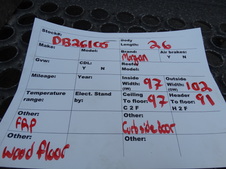 Stock#: DB26105 Body Length: 26
Make: Model: Brand: Morgan Air brakes: Y N
Gvw: CDL: Y N Model:
Mileage: Year: Inside Width: 97 Outside Width: 102
Temperature range: Elect. Stand by: Ceiling To floor: 97 Header To floor: 91
Other: FRP Other: Curbside door
Other: wood floor